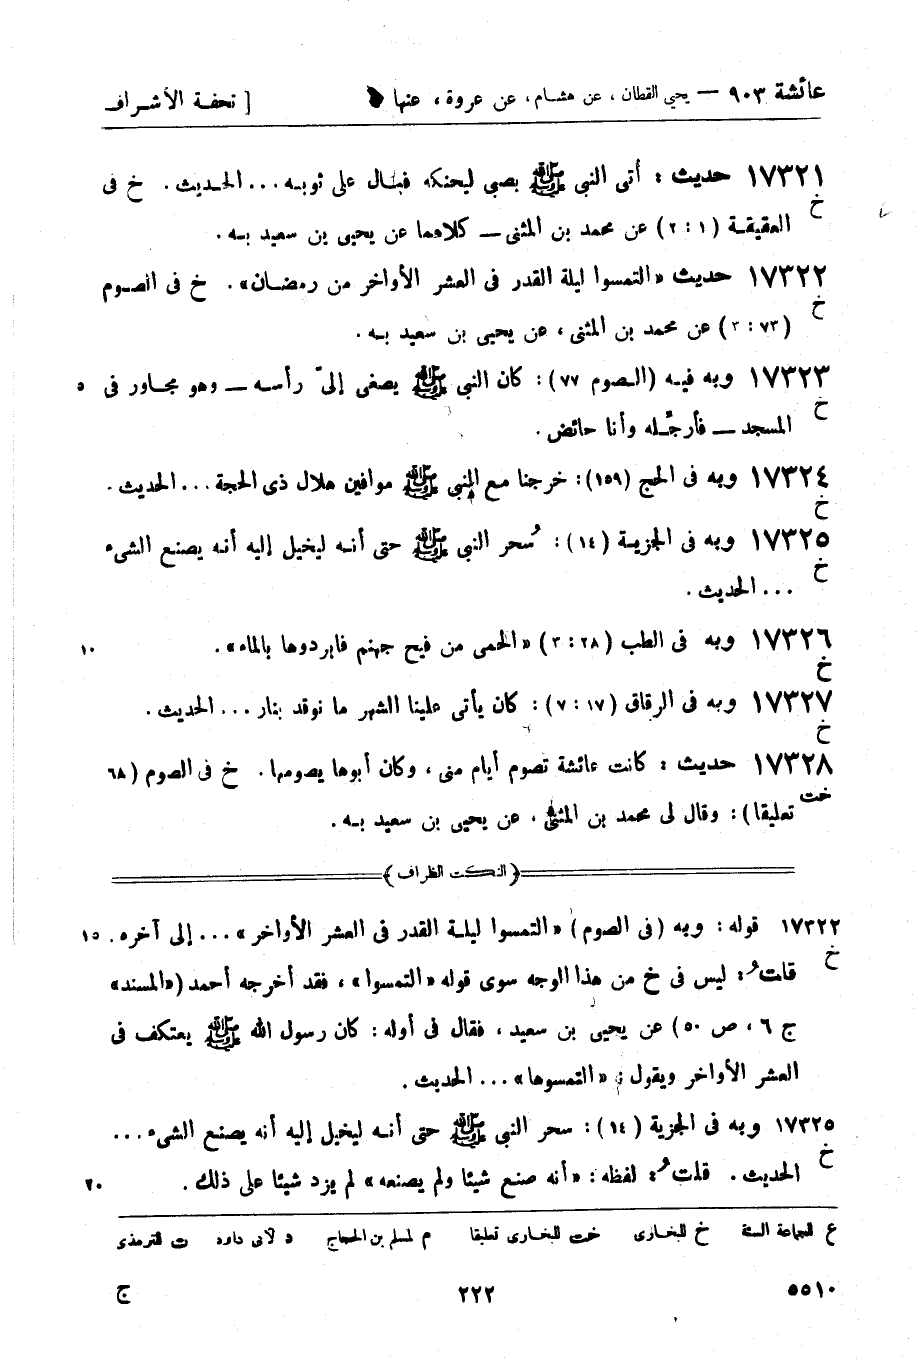 عائشة ٩٠٣ — يحيى القطان، عن هشام، عن عروة، عنها [ تحفة الأشراف
١٧٣٢١ حديث : أتى النبي ﷺ بصبي ليحنكه فبال على ثوبه ... الحديث . خ فى
خ العقيقة (١ : ٢) عن محمد بن المثنى — كلاهما عن يحيى بن سعيد به .
١٧٣٢٢ حديث «التمسوا ليلة القدر فى العشر الأواخر من رمضان» . خ فى الصوم
خ (٧٣ : ٣) عن محمد بن المثنى ، عن يحيى بن سعيد به .
١٧٣٢٣ وبه فيه (الصوم ٧٧) : كان النبي ﷺ يصغى إلىّ رأسه — وهو مجاور فى ٥
خ المسجد — فأرجّله وأنا حائض .
١٧٣٢٤ وبه فى الحج (١٥٩) : خرجنا مع النبي ﷺ موافين هلال ذى الحجة ... الحديث .
خ
١٧٣٢٥ وبه فى الجزية (١٤) : سُحر النبي ﷺ حتى أنه ليخيل إليه أنه يصنع الشىء
خ ... الحديث .
١٧٣٢٦ وبه فى الطب (٢٨ : ٣) «الحمى من فيح جهنم فابردوها بالماء» . ١٠
خ
١٧٣٢٧ وبه فى الرقاق (١٧ : ٧) : كان يأتى علينا الشهر ما نوقد بنار ... الحديث .
خ
١٧٣٢٨ حديث : كانت عائشة تصوم أيام منى ، وكان أبوها يصومها . خ فى الصوم (٦٨
خت تعليقا) : وقال لى محمد بن المثنى ، عن يحيى بن سعيد به .
﴿ النكت الظراف ﴾
١٧٣٢٢ قوله : وبه (فى الصوم) «التمسوا ليلة القدر فى العشر الأواخر» ... إلى آخره . ١٥
خ قلتُ : ليس فى خ من هذا الوجه سوى قوله «التمسوا» ، فقد أخرجه أحمد («المسند»
ج ٦ ، ص ٥٠) عن يحيى بن سعيد ، فقال فى أوله : كان رسول الله ﷺ يعتكف فى
العشر الأواخر ويقول : «التمسوها» ... الحديث .
١٧٣٢٥ وبه فى الجزية (١٤) : سحر النبي ﷺ حتى أنه ليخيل إليه أنه يصنع الشىء ...
خ الحديث . قلتُ : لفظه : «أنه صنع شيئا ولم يصنعه» لم يزد شيئا على ذلك . ٢٠
ع للجماعة الستة خ للبخارى خت للبخارى تعليقا م لمسلم بن الحجاج د لأبى داود ت للترمذى
٥٥١٠ ٢٢٢ ج